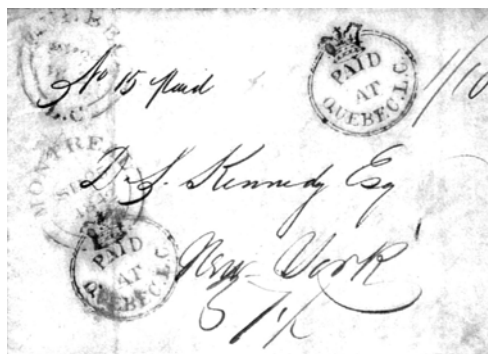 QUEBEC
L.C
No 15 Paid
PAID
AT
QUEBEC.L.C.
1/10
MONTREAL
D. S. Kennedy Esq
PAID
AT
QUEBEC.L.C.
New-York